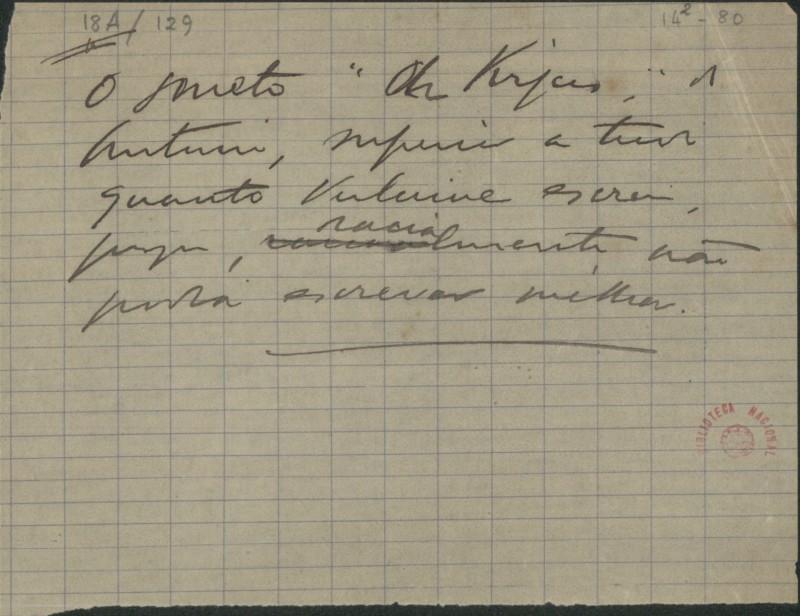 18A/129
14² - 80
O soneto "Oh Virgens," d
Antonio, superior a tudo
quanto Verlaine escreveu,
porque, racialmente, não
podia escrever melhor.
BIBLIOTECA NACIONAL